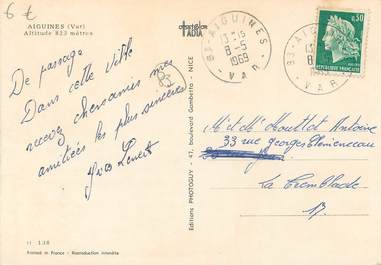 6 €
AIGUINES (Var)
Altitude 823 mètres
83-AIGUINES
13H15
8-5
1969
VAR
0,30
REPUBLIQUE FRANCAISE
De passage
Dans cette ville
recevez chers amis mes
amitiées les plus sincères
Editions PHOTOGUY - 47, boulevard Gambetta - NICE
M et Me Antoine
33 rue georges Clemenceau
La Tremblade
17.
11 138
Printed in France - Reproduction interdite